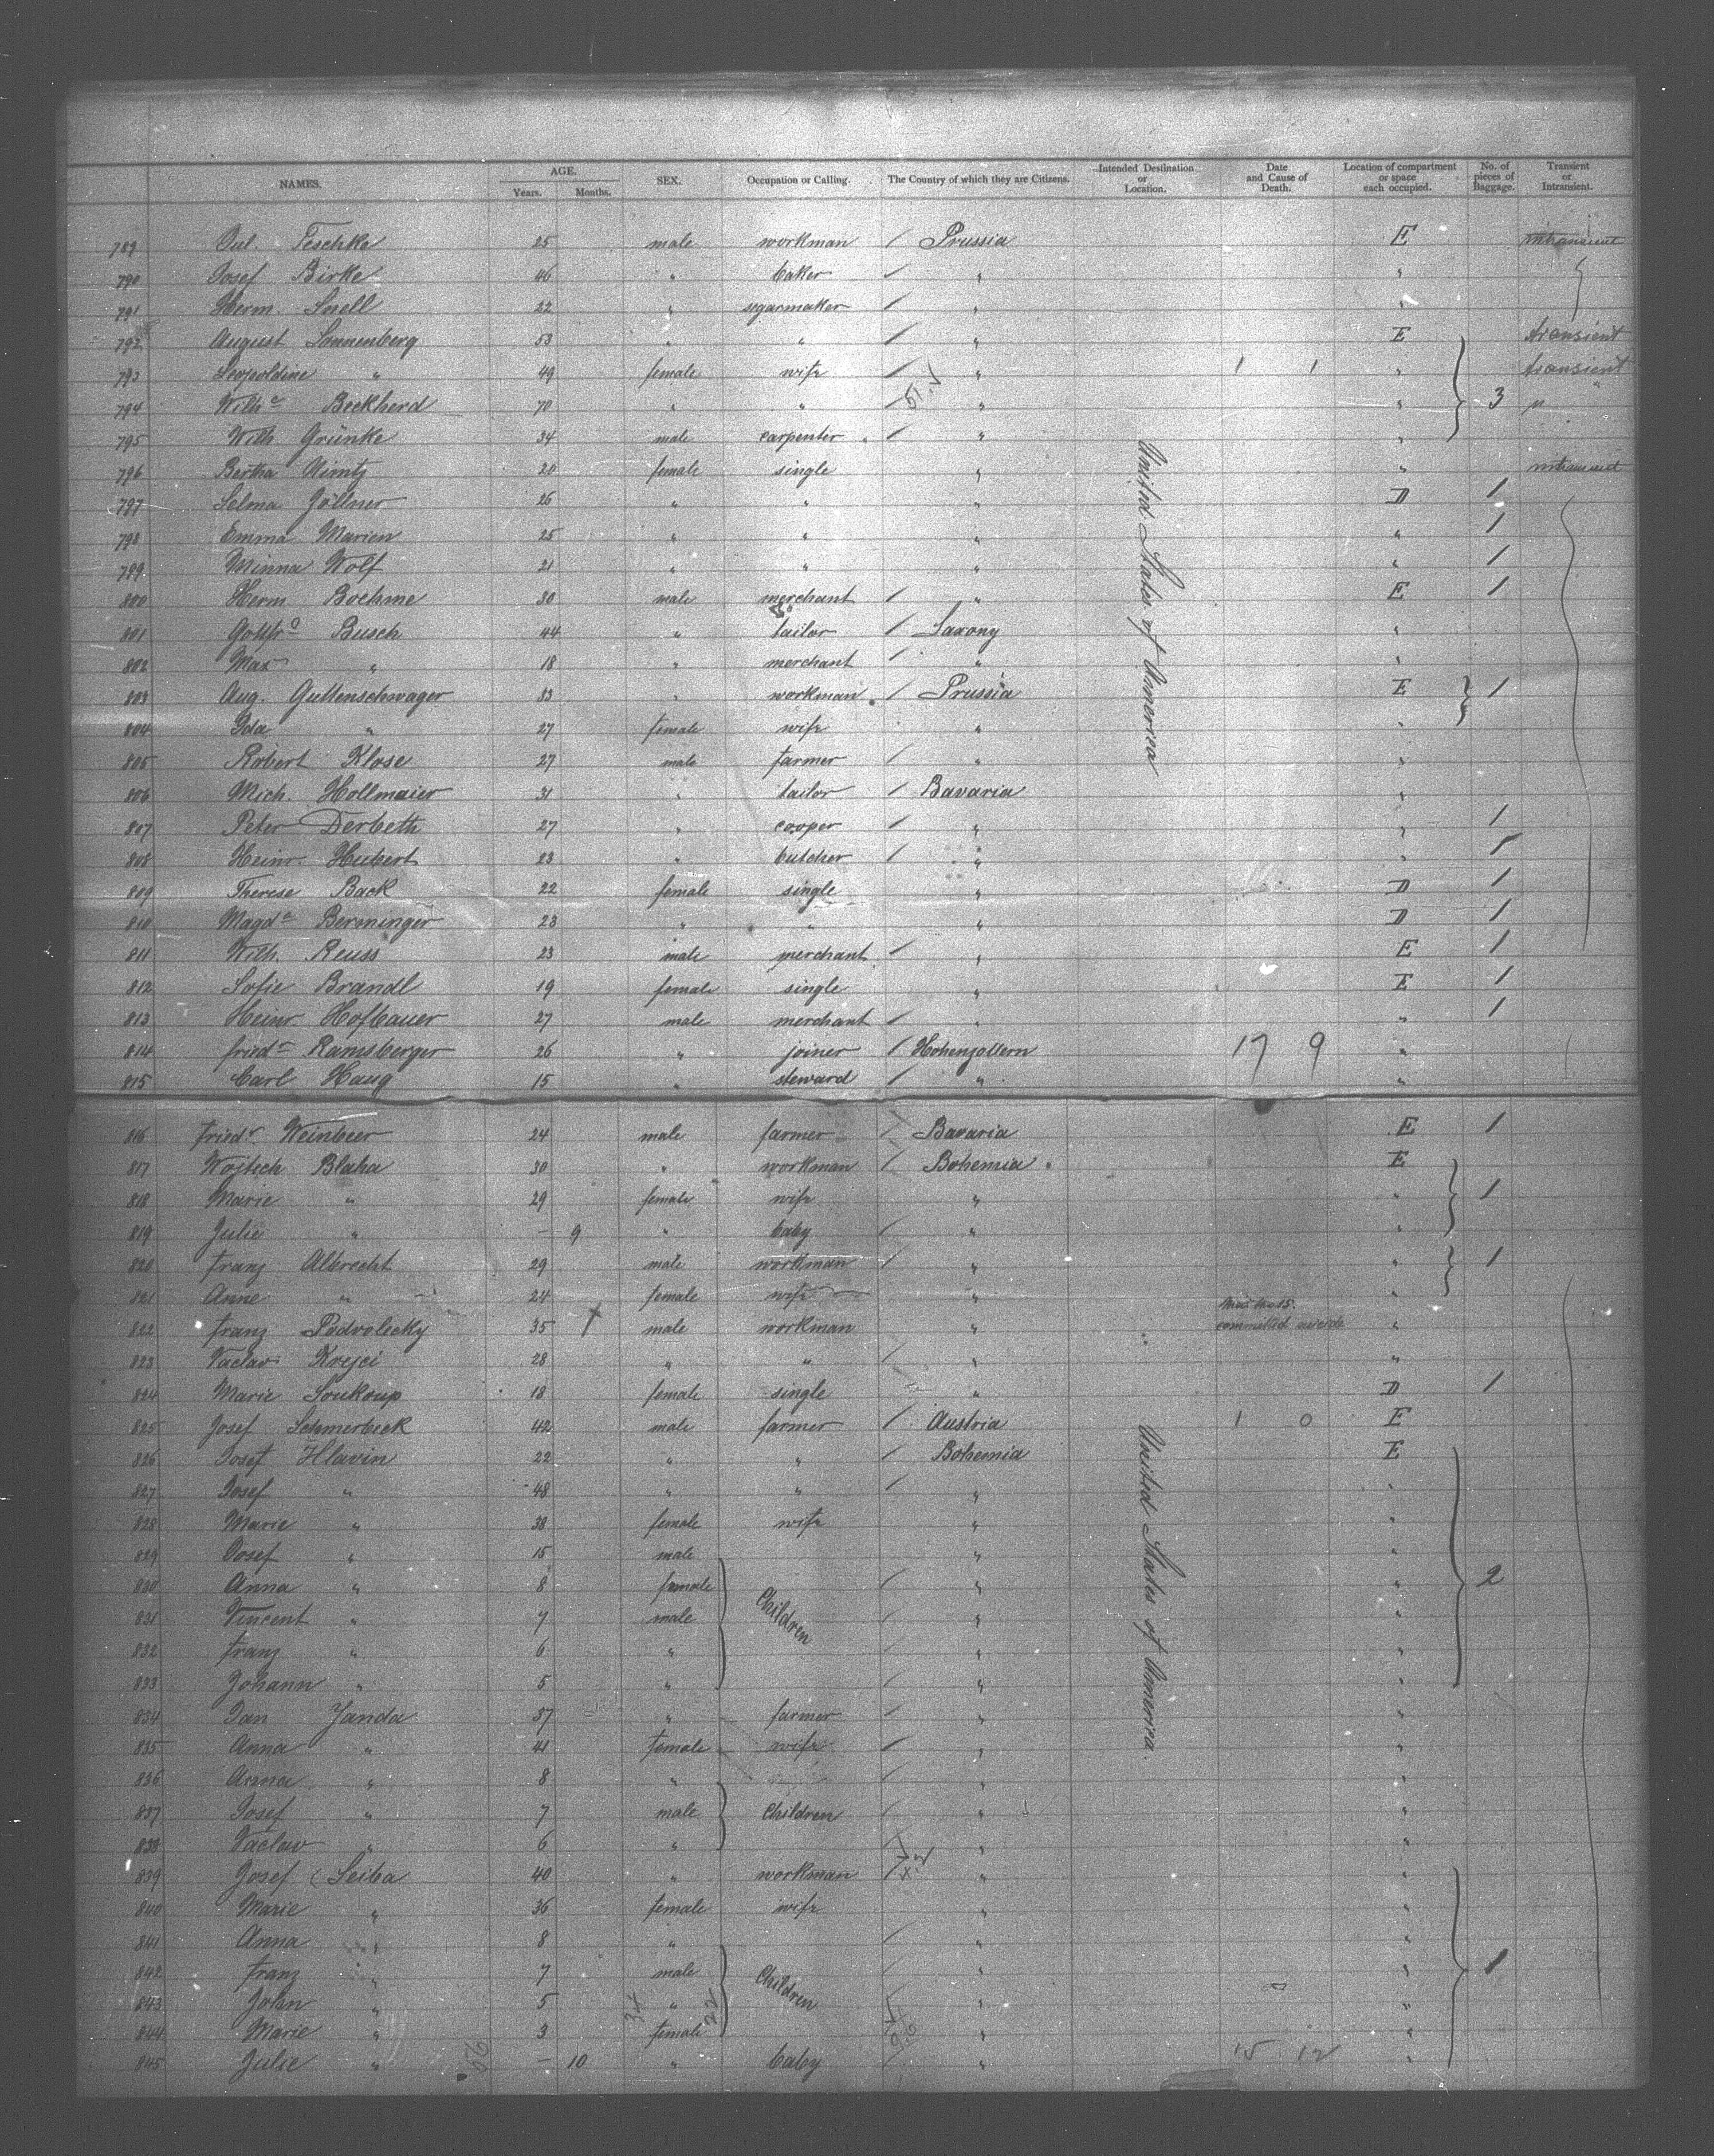 NAMES. AGE. Years. Months. SEX. Occupation or Calling. The Country of which they are Citizens. Intended Destination or Location. Date and Cause of Death. Location of compartment or space each occupied. No. of pieces of Baggage. Transient or Intransient.
789 Jul. Teschke 25 male workman / Prussia E intransient
790 Josef Birke 46 " baker / " "
791 Herm. Snell 22 " segarmaker / " "
792 August Sonnenberg 53 " " / " E transient
793 Leopoldine " 49 female wife / " 1 1 " transient
794 Wilhe Beckherd 70 " " / " " 3 "
795 Wilh Grünke 34 male carpenter / " "
796 Bertha Nimtz 20 female single " " intransient
797 Selma Zöllner 26 " " " D 1
798 Emma Marien 25 " " " " 1
799 Minna Wolf 21 " " " " 1
800 Herm Boehme 30 male merchant / " E 1
801 Gottfro Busch 44 " tailor / Saxony "
802 Max " 18 " merchant / " "
803 Aug. Guttenschwager 33 " workman / Prussia E 1
804 Ida " 27 female wife " "
805 Robert Klose 27 male farmer / " "
806 Mich. Hollmaier 31 " tailor / Bavaria "
807 Peter Derbeth 27 " cooper / " " 1
808 Heinr. Hubert 23 " butcher / " " 1
809 Therese Back 22 female single " D 1
810 Magde Berninger 23 " " " D 1
811 Wilh. Reuss 23 male merchant / " E 1
812 Sofie Brandl 19 female single " E 1
813 Heinr. Hofbauer 27 male merchant / " " 1
814 Friedr Ramsberger 26 " joiner / Hohenzollern 17 9 "
815 Carl Haug 15 " steward / " "
United States of America
816 Friedr Weinbeer 24 male farmer / Bavaria E 1
817 Wojtech Blaha 30 " workman / Bohemia E
818 Marie " 29 female wife " " 1
819 Julie " – 9 " baby / " "
820 Franz Albrecht 29 male workman / " " 1
821 Anne " 24 female wife " "
822 Franz Podvolecky 35 male workman " committed suicide "
823 Vaclav Krejci 28 " " / " "
824 Marie Soukoup 18 female single " D 1
825 Josef Schmerbeck 42 male farmer / Austria 1 0 E
826 Josef Hlavin 22 " " / Bohemia E
827 Josef " 48 " " / " "
828 Marie " 38 female wife " "
829 Josef " 15 male " "
830 Anna " 8 female Children / " " 2
831 Vincent " 7 male / " "
832 Franz " 6 " / " "
833 Johann " 5 " / " "
834 Jan Janda 37 " farmer / " "
835 Anna " 41 female wife / " "
836 Anna " 8 " / " "
837 Josef " 7 male Children / " "
838 Vaclav " 6 " " "
839 Josef Seiba 40 " workman / " "
840 Marie " 36 female wife " "
841 Anna " 8 " / " "
842 Franz " 7 male Children / " " 1
843 John " 5 " " "
844 Marie " 3 female " "
845 Julie " – 10 " baby / " 15 12 "
United States of America.